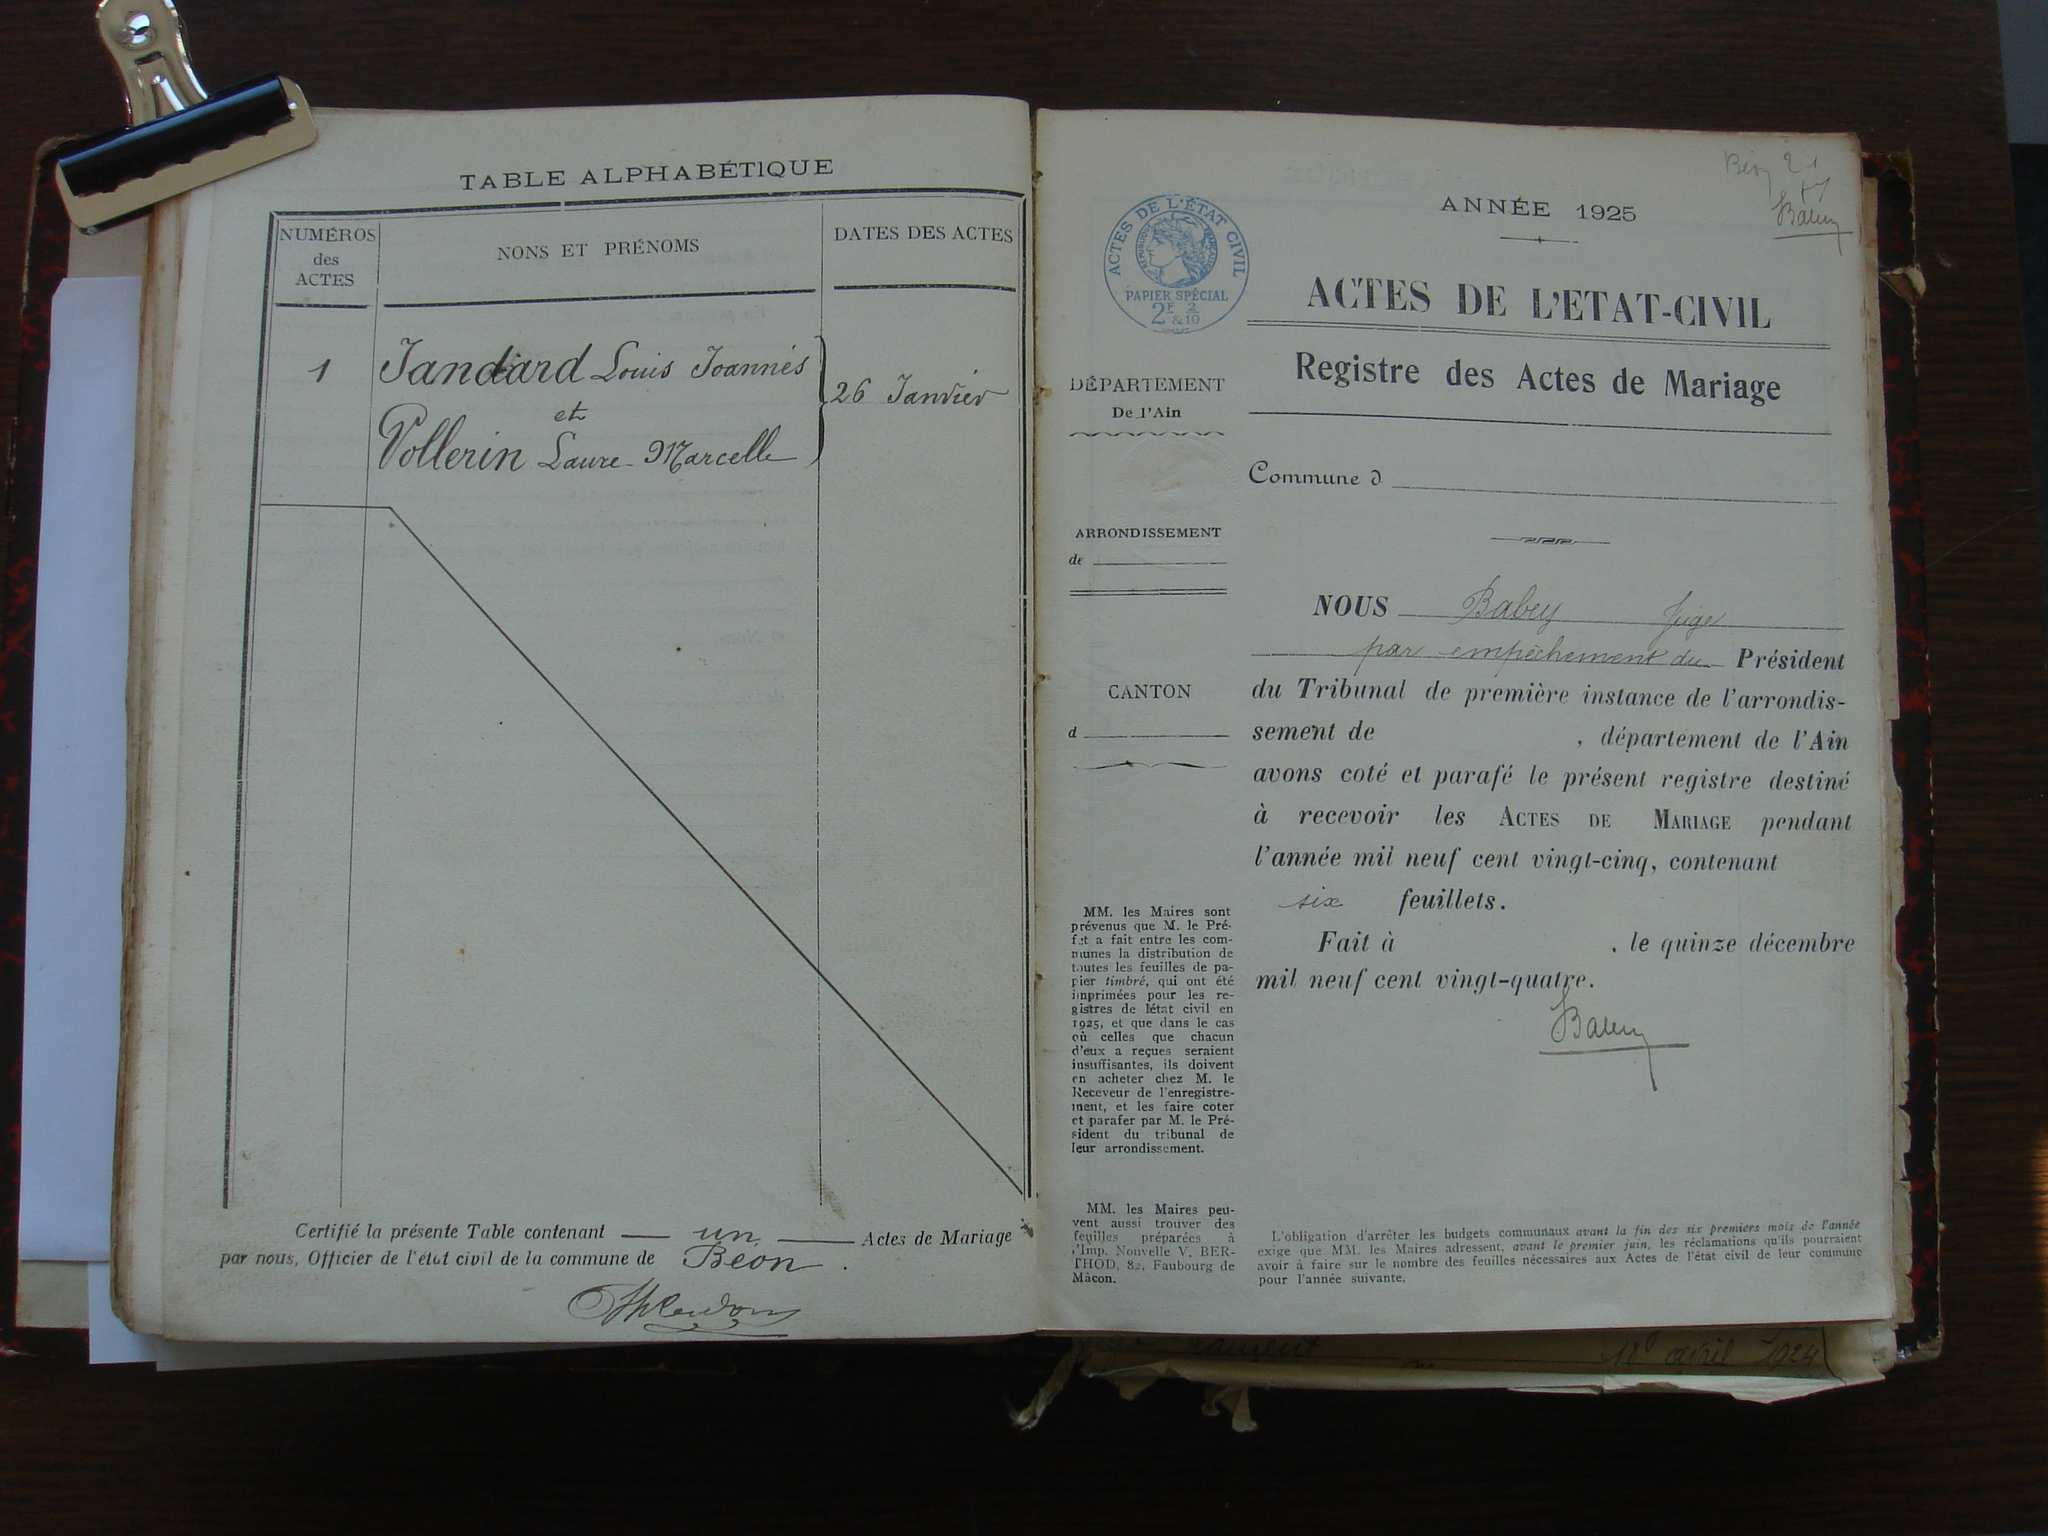 TABLE ALPHABÉTIQUE
NUMÉROS
des
ACTES
NONS ET PRÉNOMS
DATES DES ACTES
1
Jandard Louis Joannès
et
Vollerin Laure-Marcelle
26 Janvier
Certifié la présente Table contenant un Actes de Mariage
par nous, Officier de l'état civil de la commune de Béon.
ANNÉE 1925
ACTES DE L'ÉTAT CIVIL
RÉPUBLIQUE FRANÇAISE
PAPIER SPÉCIAL
2F & 2/10
ACTES DE L'ETAT-CIVIL
Registre des Actes de Mariage
DÉPARTEMENT
De l'Ain
Commune d
ARRONDISSEMENT
de
CANTON
d
NOUS Babey Juge
par empêchement du Président
du Tribunal de première instance de l'arrondis-
sement de , département de l'Ain
avons coté et parafé le présent registre destiné
à recevoir les ACTES DE MARIAGE pendant
l'année mil neuf cent vingt-cinq, contenant
six feuillets.
Fait à , le quinze décembre
mil neuf cent vingt-quatre.
Babey
MM. les Maires sont
prévenus que M. le Pré-
fet a fait entre les com-
munes la distribution de
toutes les feuilles de pa-
pier timbré, qui ont été
imprimées pour les re-
gistres de létat civil en
1925, et que dans le cas
où celles que chacun
d'eux a reçues seraient
insuffisantes, ils doivent
en acheter chez M. le
Receveur de l'enregistre-
ment, et les faire coter
et parafer par M. le Pré-
sident du tribunal de
leur arrondissement.
MM. les Maires peu-
vent aussi trouver des
feuilles préparées à
l'Imp. Nouvelle V. BER-
THOD, 82, Faubourg de
Mâcon.
L'obligation d'arrêter les budgets communaux avant la fin des six premiers mois de l'année
exige que MM. les Maires adressent, avant le premier juin, les réclamations qu'ils pourraient
avoir à faire sur le nombre des feuilles nécessaires aux Actes de l'état civil de leur commune
pour l'année suivante.
18 avril 1924